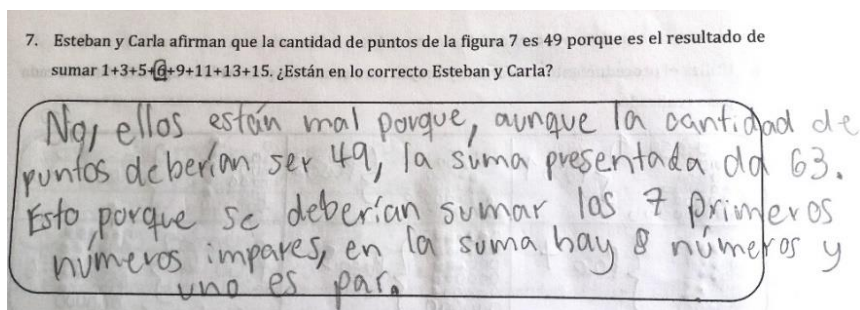 7. Esteban y Carla afirman que la cantidad de puntos de la figura 7 es 49 porque es el resultado de
sumar 1+3+5+6+9+11+13+15. ¿Están en lo correcto Esteban y Carla?
No, ellos están mal porque, aunque la cantidad de
puntos deberían ser 49, la suma presentada da 63.
Esto porque se deberían sumar los 7 primeros
números impares, en la suma hay 8 números y
uno es par.